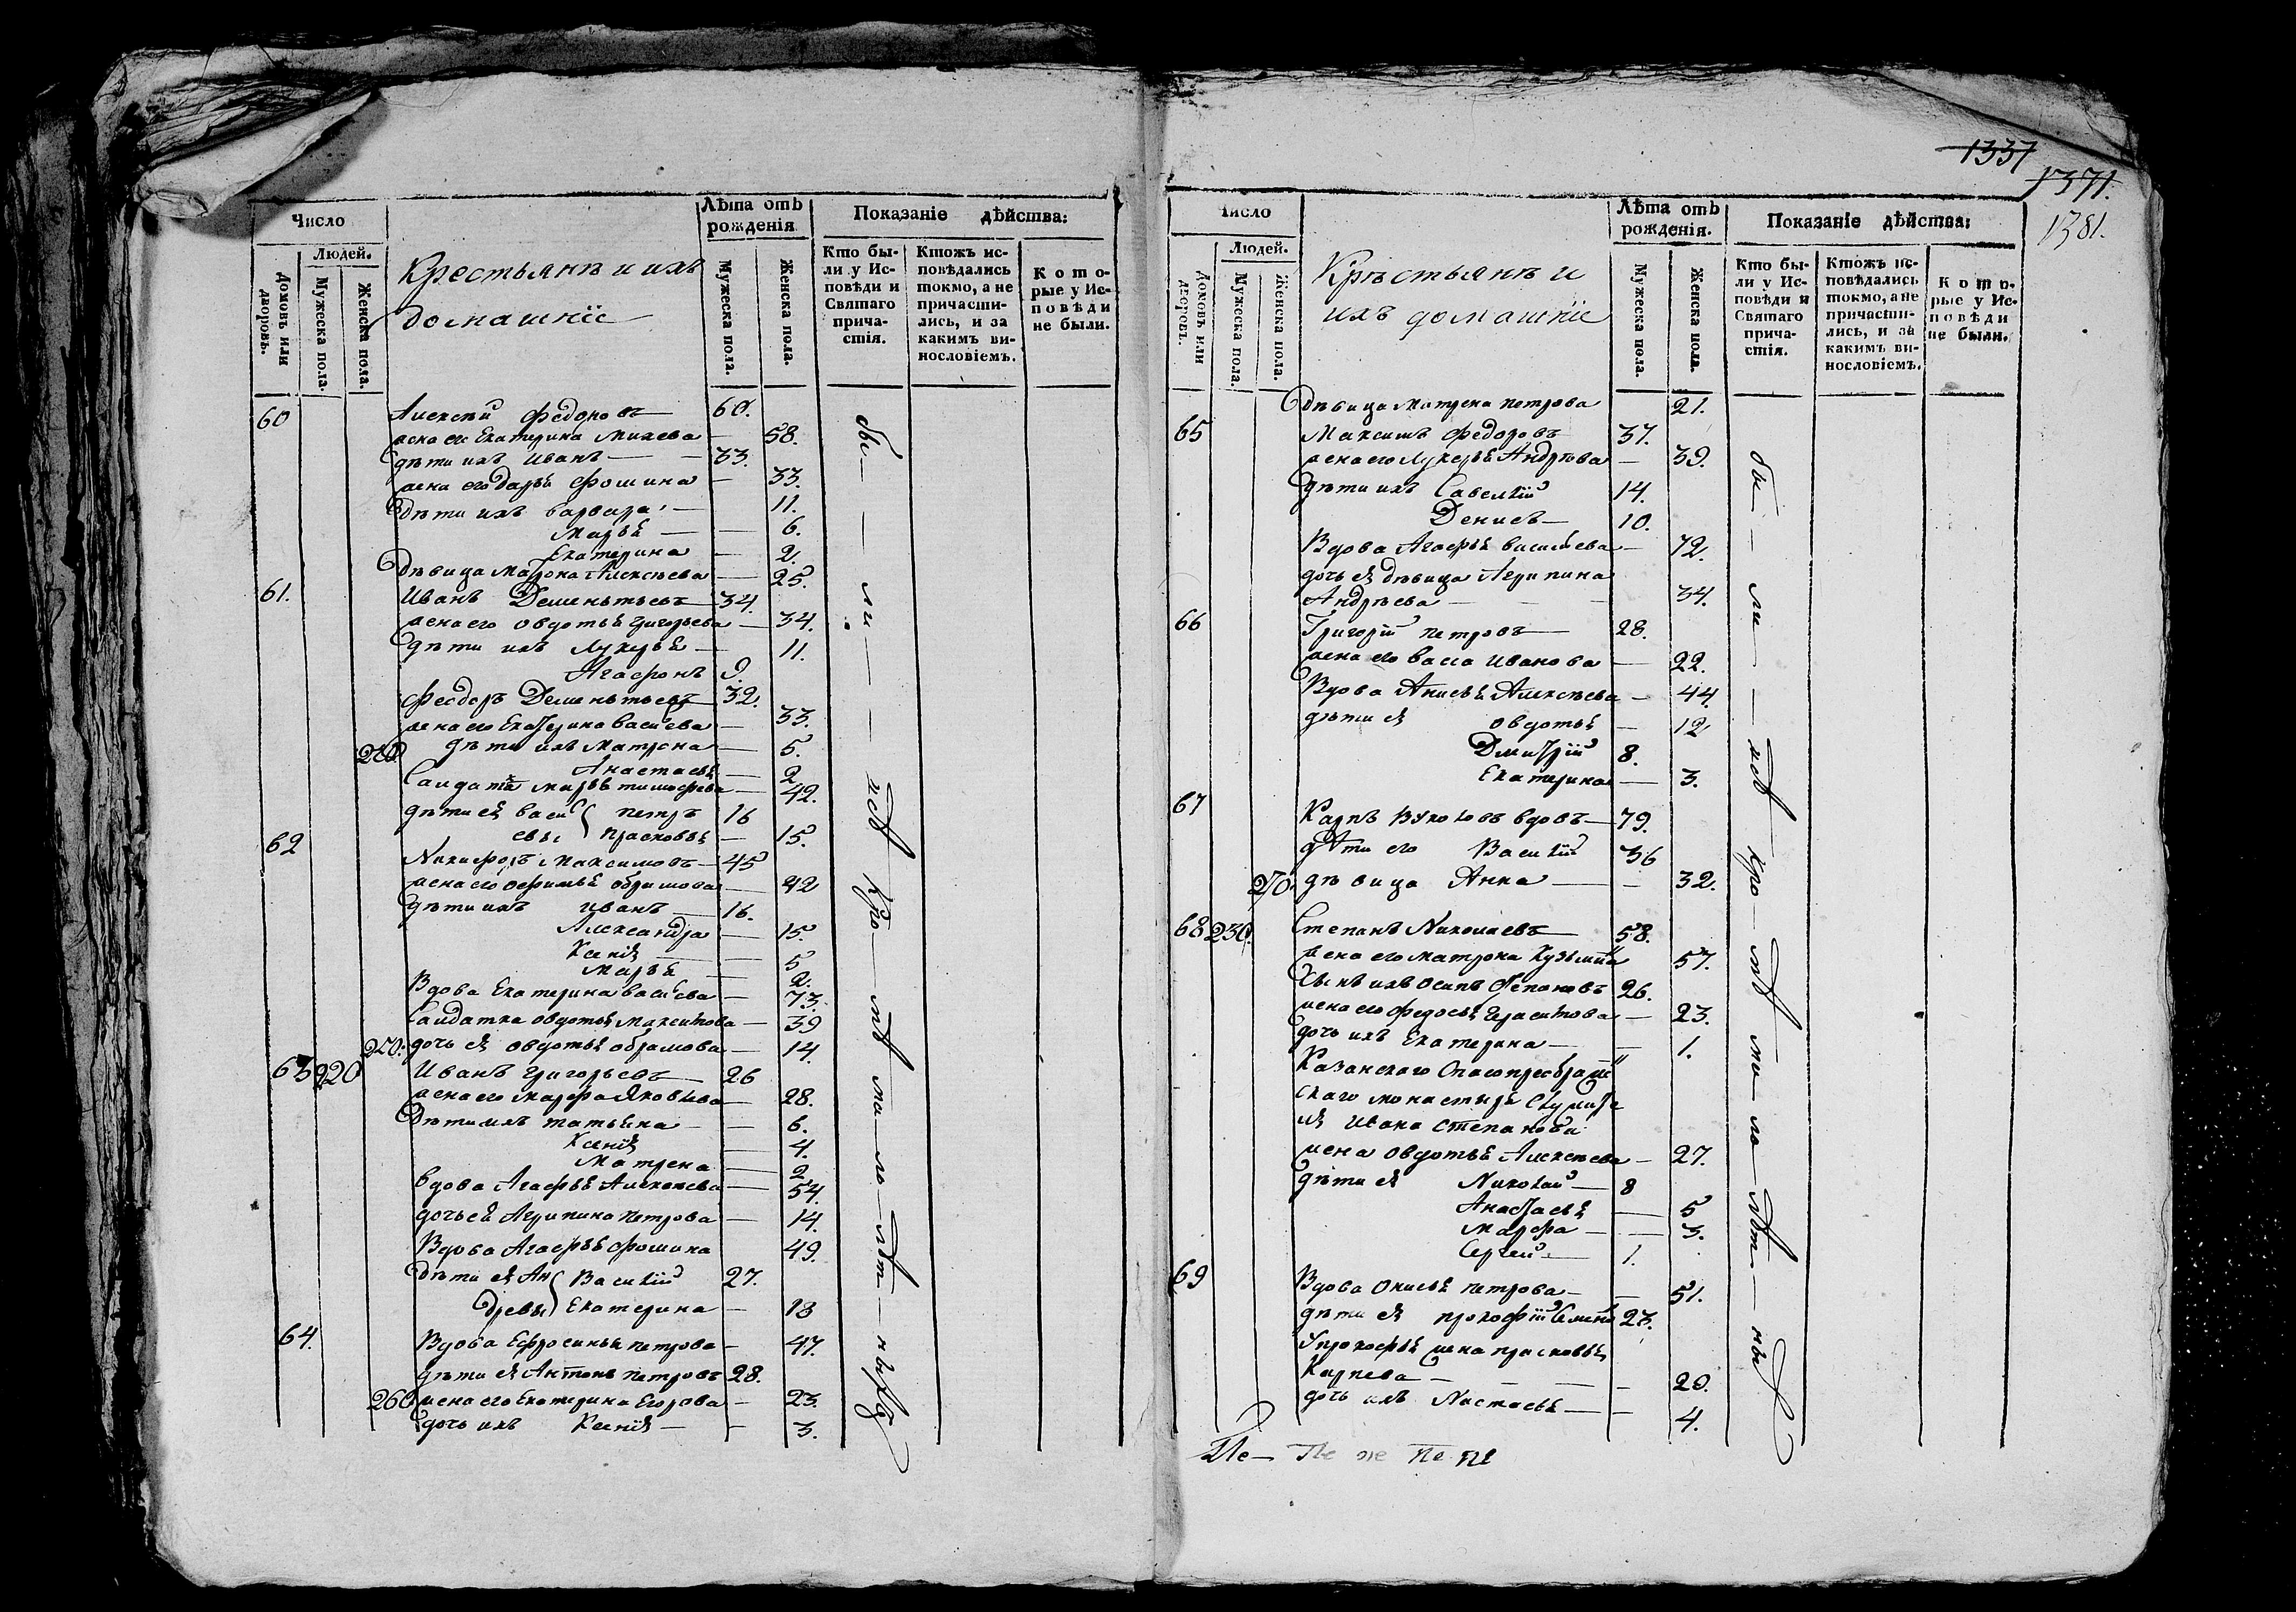 Число
Людей.
Домовъ или дворовъ.
Мужеска пола.
Женска пола.
Крестьянѣ и ихъ
домашнїе
Лѣта отъ рожденія
Мужеска пола.
Женска пола.
Показаніе дѣйства:
Кто были у Исповѣди и Святаго причастія.
Ктожъ исповѣдались токмо, а не причастились, и за какимъ винословіемъ.
Которые у Исповѣди не были.
60 Алексѣй Федоровъ 60.
жена его Екатерина Михева 58.
дѣти ихъ Иванъ 33.
жена его Дарья Фомина 33.
дѣти ихъ Варвара 11.
Марья 6.
Екатерина 2.
дѣвица Матрона Алексѣева 25.
61. Иванъ Дементьевъ 34.
жена его Овдотья Григорьева 34.
дѣти ихъ Лукерья 11.
Агафонъ 9.
Феодоръ Дементьевъ 32.
жена его Екатерина Васильева 33.
дѣти ихъ Матрона 5.
Анастасья 2
Салдатка Марья Тимофеева 42.
дѣти ея Васи Петръ 16
евы Прасковья 15.
62 Никифоръ Максимовъ 45
жена его Офимья Обрамова 42
дѣти ихъ Иванъ 16.
Александра 15.
Ксенїя 5
Марья 2.
Вдова Екатерина Васильева 73.
Салдатка Овдотья Максимова 39
250. дочь ея Овдотья Обрамова 14.
63 220 Иванъ Григорьевъ 26
жена его Марфа Яковлева 28.
дѣти ихъ Татьяна 6.
Ксенїя 4.
Матрена 2
Вдова Агафья Алексѣева 54.
дочь ея Агрипина Петрова 14.
Вдова Агафья Фомина 49.
дѣти ея Ан Василїй 27.
древы Екатерина 18
64. Вдова Ефросинья Петрова 47.
дѣти ея Антонъ Петровъ 28.
260 жена его Екатерина Егорова 23.
дочь ихъ Ксенїя 3.
бы — ли — всѣ
1337
1371.
1381.
Число
Людей.
Домовъ или дворовъ.
Мужеска пола.
Женска пола.
Крѣстьянѣ и
ихъ домашнїе
Лѣта отъ рожденія.
Мужеска пола.
Женска пола.
Показаніе дѣйства:
Кто были у Исповѣди и Святаго причастія.
Ктожъ исповѣдались токмо, а не причастились, и за какимъ винословіемъ.
Которые у Исповѣди не были.
дѣвица Матрена Петрова 21.
65 Максимъ Федоровъ 37.
жена его Лукерья Андрѣева 39.
дѣти ихъ Савелїй 14.
Денисъ 10.
Вдова Агафья Васильева 72.
дочь ея дѣвица Агрипина
Андрѣева 34.
66 Григорїй Петровъ 28.
жена его Васса Иванова 22.
Вдова Анисья Алексѣева 44.
дѣти ея Овдотья 12
Дмитрїй 8.
Екатерина 3.
67 Карпъ Вуколовъ вдовъ 79.
дѣти его Василїй 36
270. дѣвица Анна 32.
68 230. Степанъ Николаевъ 58.
жена его Матрона Кузьмина 57.
Сынъ ихъ Осипъ Степановъ 26.
жена его Федосья Герасимова 23.
дочь ихъ Екатерина 1.
Казанскаго Спасопреображен
скаго монастыря служите
ля Ивана Степанова
жена Овдотья Алексѣева 27.
дѣти ея Николай 8
Анастасья 5
Марфа 3.
Сергей 1.
69 Вдова Онисья Петрова 51.
дѣти ея Прокофїй Семенъ 23.
У Прокофья жена Прасковья
Карпева 20.
дочь ихъ Настасья 4.
бы — ли — всѣ — кро — мѣ — ма — ло — лѣт — ны
Пе — Пе Пе Пе